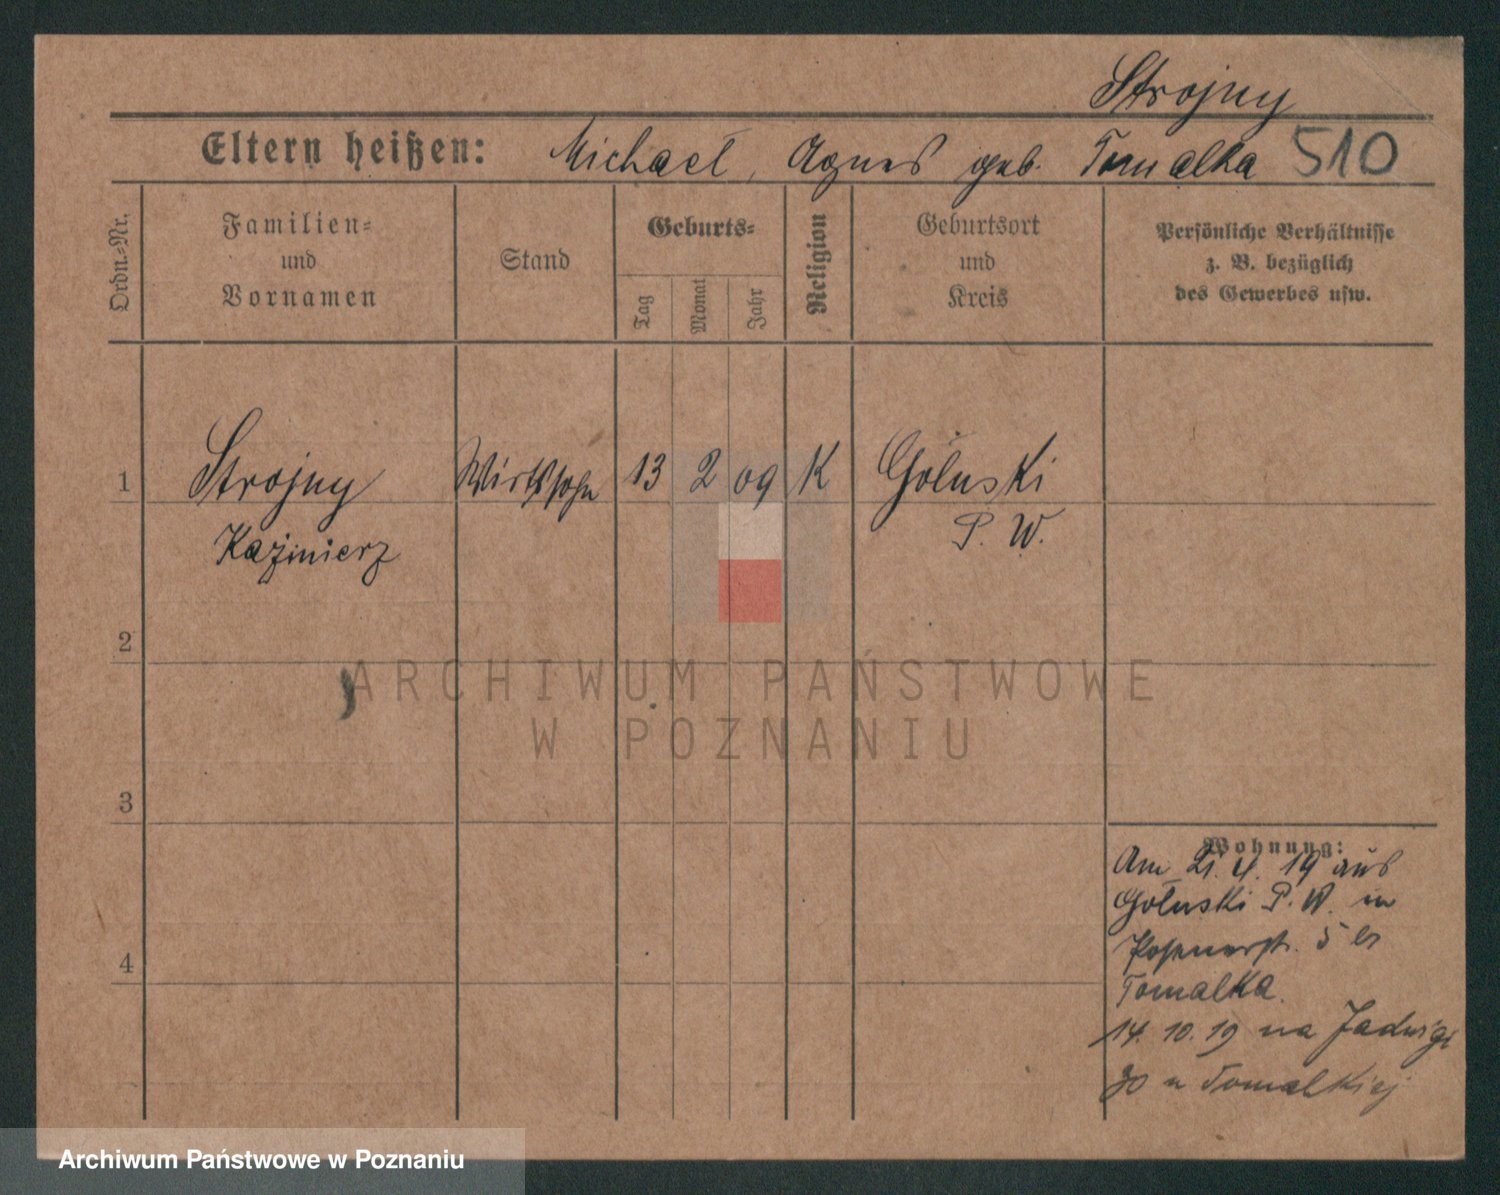 Strojny
Eltern heißen: Michael, Agnes geb. Tomalka 510
Ordn.-Nr.
Familien-
und
Vornamen
Stand
Geburts-
Tag
Monat
Jahr
Religion
Geburtsort
und
Kreis
Persönliche Verhältnisse
z. B. bezüglich
des Gewerbes usw.
1 Strojny Wirtssohn 13 2 09 K Gołuski
Kazimierz P. W.
2
ARCHIWUM PAŃSTWOWE
W POZNANIU
3
Wohnung:
Am 21. 4. 19 aus
Gołuski P. W. in
Posenerstr. 5 br
4
Tomalka.
14. 10. 19 na Jadwigi
30 u Tomalkiej
Archiwum Państwowe w Poznaniu